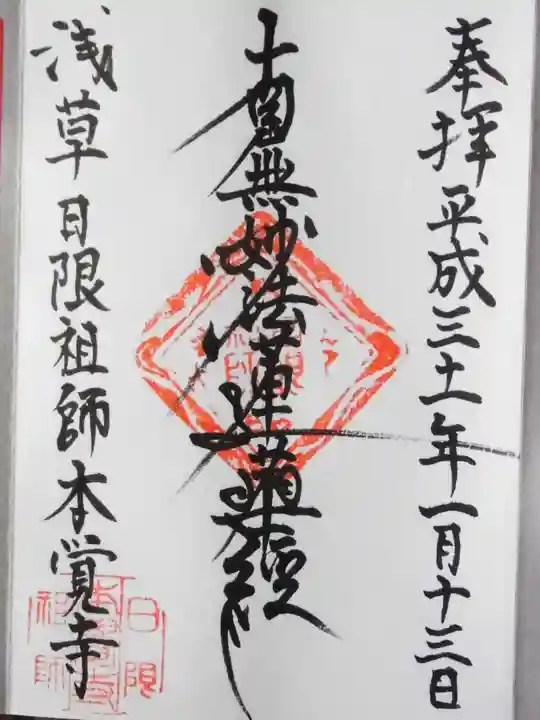 奉拝 平成三十一年一月十三日
南無妙法蓮華経
浅草 日限祖師 本覚寺
日限
祖師